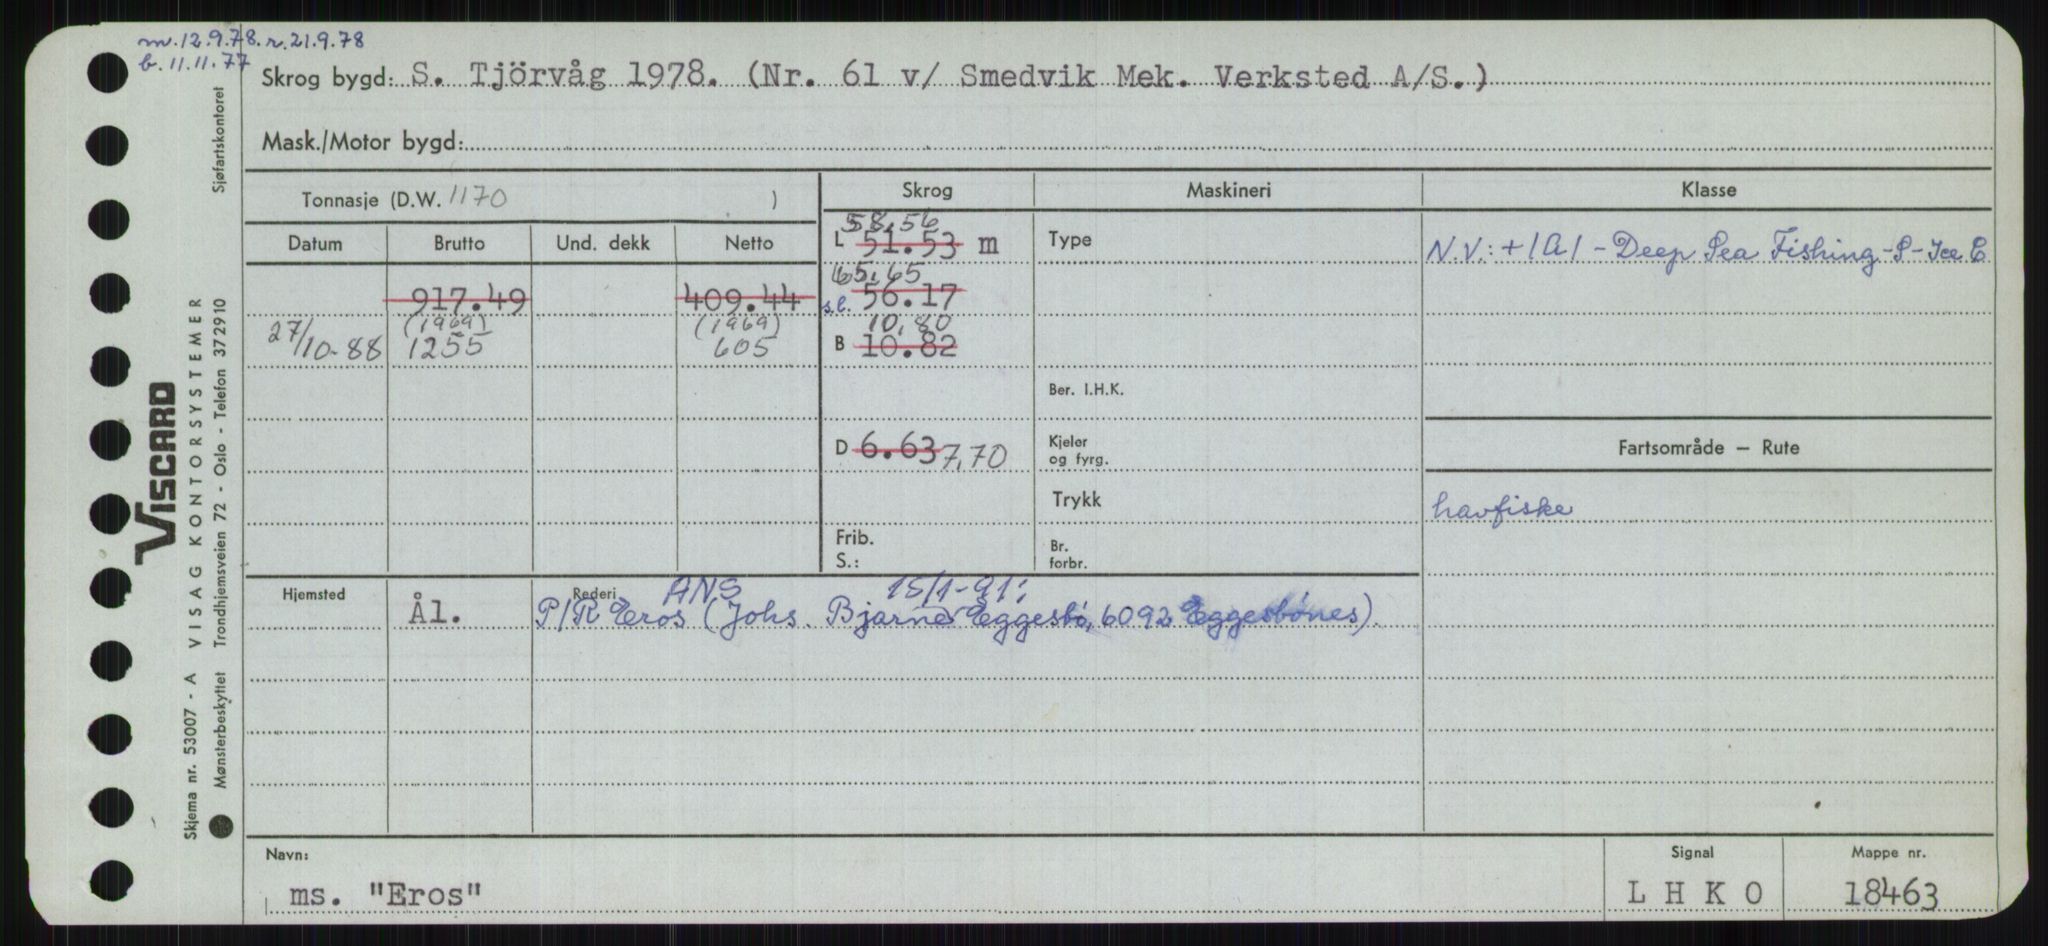 m. 12.9.78. r. 21.9.78
b. 11.11.77
Skrog bygd: S. Tjörvåg 1978. (Nr. 61 v/ Smedvik Mek. Verksted A/S.)
Mask./Motor bygd:
Tonnasje (D.W. 1170 )
Skrog Maskineri Klasse
Datum Brutto Und. dekk Netto
58,56
L 51.53 m
Type
N.V.: +1A1 - Deep Sea Fishing - S - Ice C
65,65
917.49 409.44 s.b. 56.17
(1969) (1969) 10,80
27/10-88 1255 605 B 10.82
Ber. I.H.K.
D 6.63 7,70
Kjeler
og fyrg.
Fartsområde — Rute
Trykk
havfiske
Frib.
S.:
Br.
forbr.
Hjemsted Rederi ANS 15/1-91:
Ål. P/R Eros (Johs. Bjarne Eggesbø, 6092 Eggesbønes).
Navn: Signal Mappe nr.
ms. "Eros" L H K O 18463
Sjøfartskontoret
VISCARD
VISAG KONTORSYSTEMER
Trondhjemsveien 72 - Oslo - Telefon 372910
Skjema nr. 53007 - A
Mønsterbeskyttet